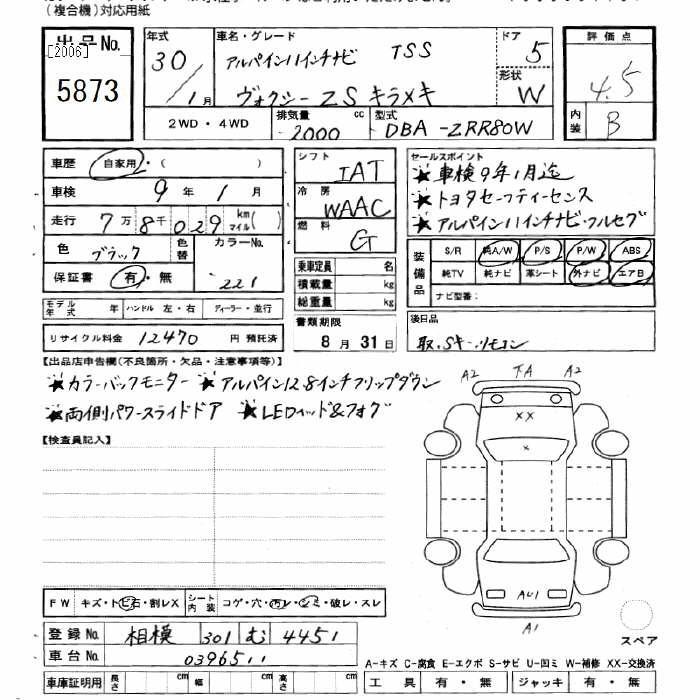 (複合機)対応用紙
出品No.
[2006]
5873
年式 30/1月
車名・グレード アルパイン11インチナビ TSS
ヴォクシーZS キラメキ
ドア 5
形状 W
評価点 4.5
内装 B
2WD・4WD
排気量 2000 cc
型式 DBA-ZRR80W
車歴 自家用・( )
車検 9年1月
走行 7万8千029 km マイル( )
色 ブラック
色替
カラーNo. 221
保証書 有・無
シフト IAT
冷房 WAAC
燃料 G
乗車定員 名
積載量 kg
総重量 kg
セールスポイント
★車検9年1月迄
★トヨタセーフティーセンス
★アルパイン11インチナビ・フルセグ
装備品
S/R 純A/W P/S P/W ABS
純TV 純ナビ 革シート 外ナビ エアB
ナビ型番:
モデル年式 年 ハンドル 左・右 ディーラー・並行
リサイクル料金 12470 円 預託済
書類期限 8月31日
後日品
取.Sキー.リモコン
【出品店申告欄(不良箇所・欠品・注意事項等)】
★カラーバックモニター ★アルパイン12.8インチフリップダウン
★両側パワースライドドア ★LEDヘッド&フォグ
【検査員記入】
A2 TA A2
XX
×
AU1
A1
スペア
FW キズ・トビ石・割レX
シート内装 コゲ・穴・汚レ・シミ・破レ・スレ
登録No. 相模 301 む 4451
車台No. 0396511
車庫証明用 長さ cm 幅 cm 高さ cm
A-キズ C-腐食 E-エクボ S-サビ U-凹ミ W-補修 XX-交換済
工具 有・無 ジャッキ 有・無